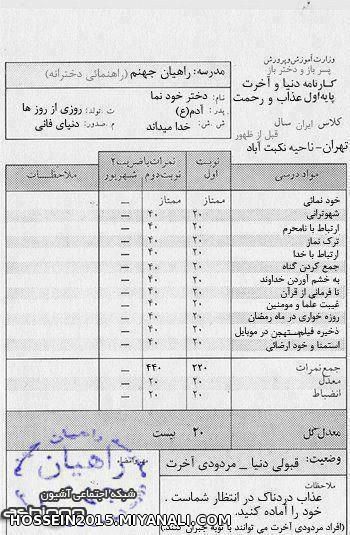 وزارت آموزش و پرورش
پسر باز و دختر باز
کارنامه دنیا و آخرت
پایه اول عذاب و رحمت
کلاس ایران سال
قبل از ظهور
تهران - ناحیه نکبت آباد
مدرسه: راهیان جهنم (راهنمائی دخترانه)
نام: دختر خود نما
پدر: آدم(ع) ت. تولد: روزی از روز ها
ش. ش: خدا میداند م. صدور: دنیای فانی
مواد درسی نوبت اول نمرات با ضریب ۲ نوبت دوم شهریور ملاحظات
خود نمائی ممتاز ممتاز —
شهوترانی ۲۰ ۴۰ —
ارتباط با نامحرم ۲۰ ۴۰ —
ترک نماز ۲۰ ۴۰ —
ارتباط با خدا ۲۰ ۴۰ —
جمع کردن گناه ۲۰ ۴۰ —
به خشم آوردن خداوند ۲۰ ۴۰ —
نا فرمانی از قرآن ۲۰ ۴۰ —
غیبت علما و مومنین ۲۰ ۴۰ —
روزه خواری در ماه رمضان ۲۰ ۴۰ —
ذخیره فیلم مستهجن در موبایل ۲۰ ۴۰ —
استمنا و خود ارضائی ۲۰ ۴۰ —
جمع نمرات ۲۲۰ ۴۴۰ —
معدل ۲۰ ۲۰ —
انضباط ۲۰ ۲۰ —
معدل کل ۲۰ بیست
مهر و امضاء
راهیان
وضعیت: قبولی دنیا _ مردودی آخرت
ملاحظات
عذاب دردناک در انتظار شماست .
خود را آماده کنید.
(افراد مردودی آخرت می توانند با توبه جبران کنند)
شبکه اجتماعی آشیون
HOSSEIN2015.MIYANALI.COM